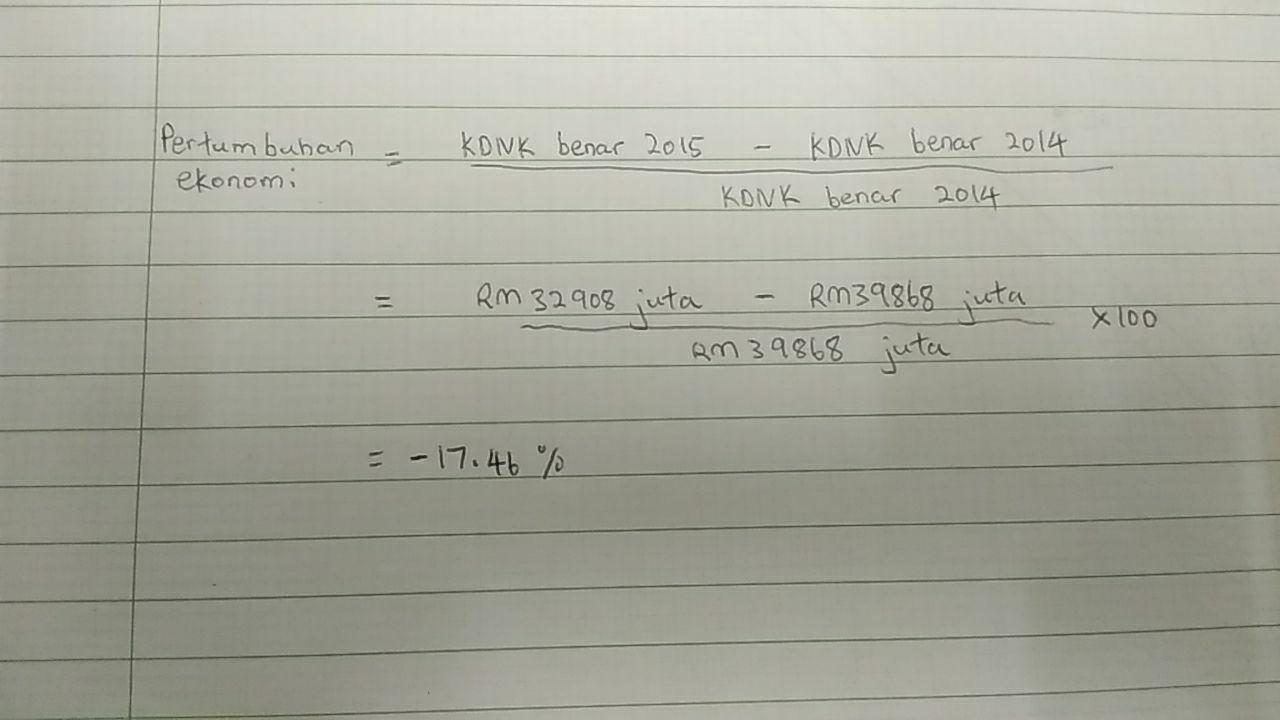 Pertumbuhan ekonomi = KDNK benar 2015 - KDNK benar 2014
KDNK benar 2014
= RM 32908 juta - RM39868 juta × 100
RM 39868 juta
= -17.46 %